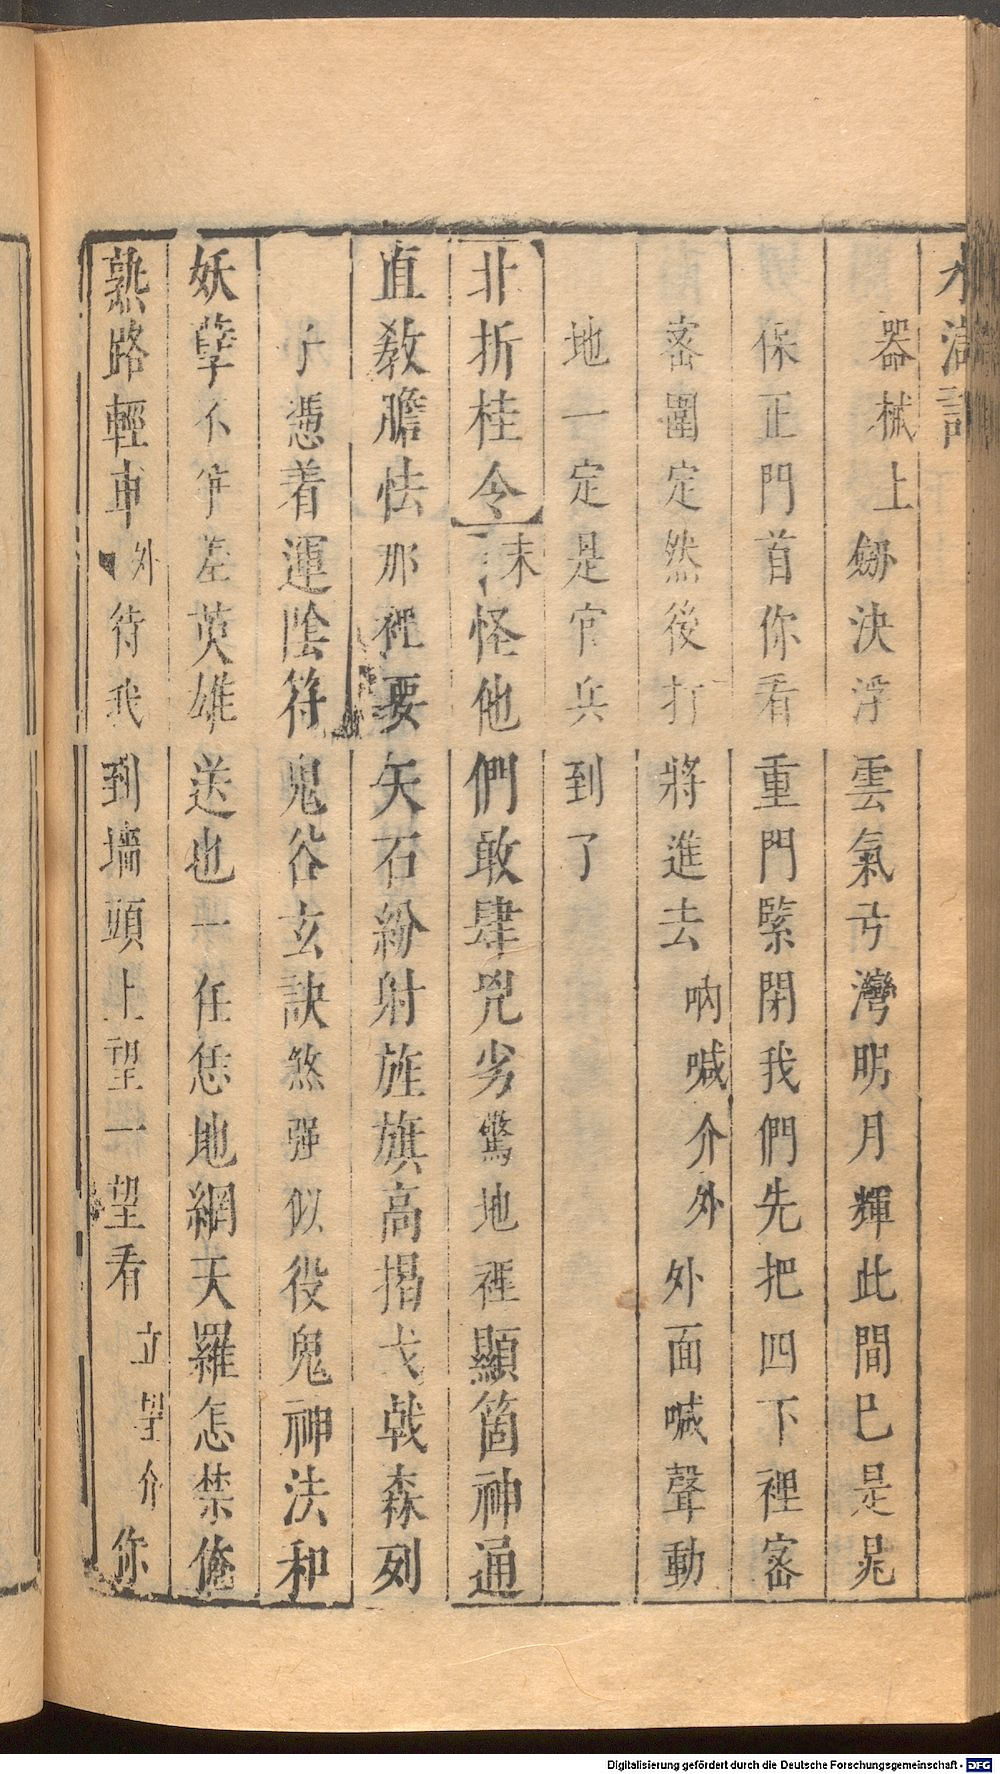 水滸記
器械上劒決浮雲氣弓灣明月輝此間已是晁
保正門首你看重門緊閉我們先把四下裡宻
宻圍定然後打將進去吶喊介外外面喊聲動
地一定是官兵到了
北折桂令末怪他們敢肆兇劣驚地裡顯箇神通
直敎膽怯那裡要矢石紛射旌旗高揭戈戟森列
憑着運陰符鬼谷玄訣煞强似役鬼神法和
妖孽不牢英雄送也一任恁地網天羅怎禁俺
熟路輕車外待我到墻頭上望一望看立望介你
Digitalisierung gefördert durch die Deutsche Forschungsgemeinschaft - DFG